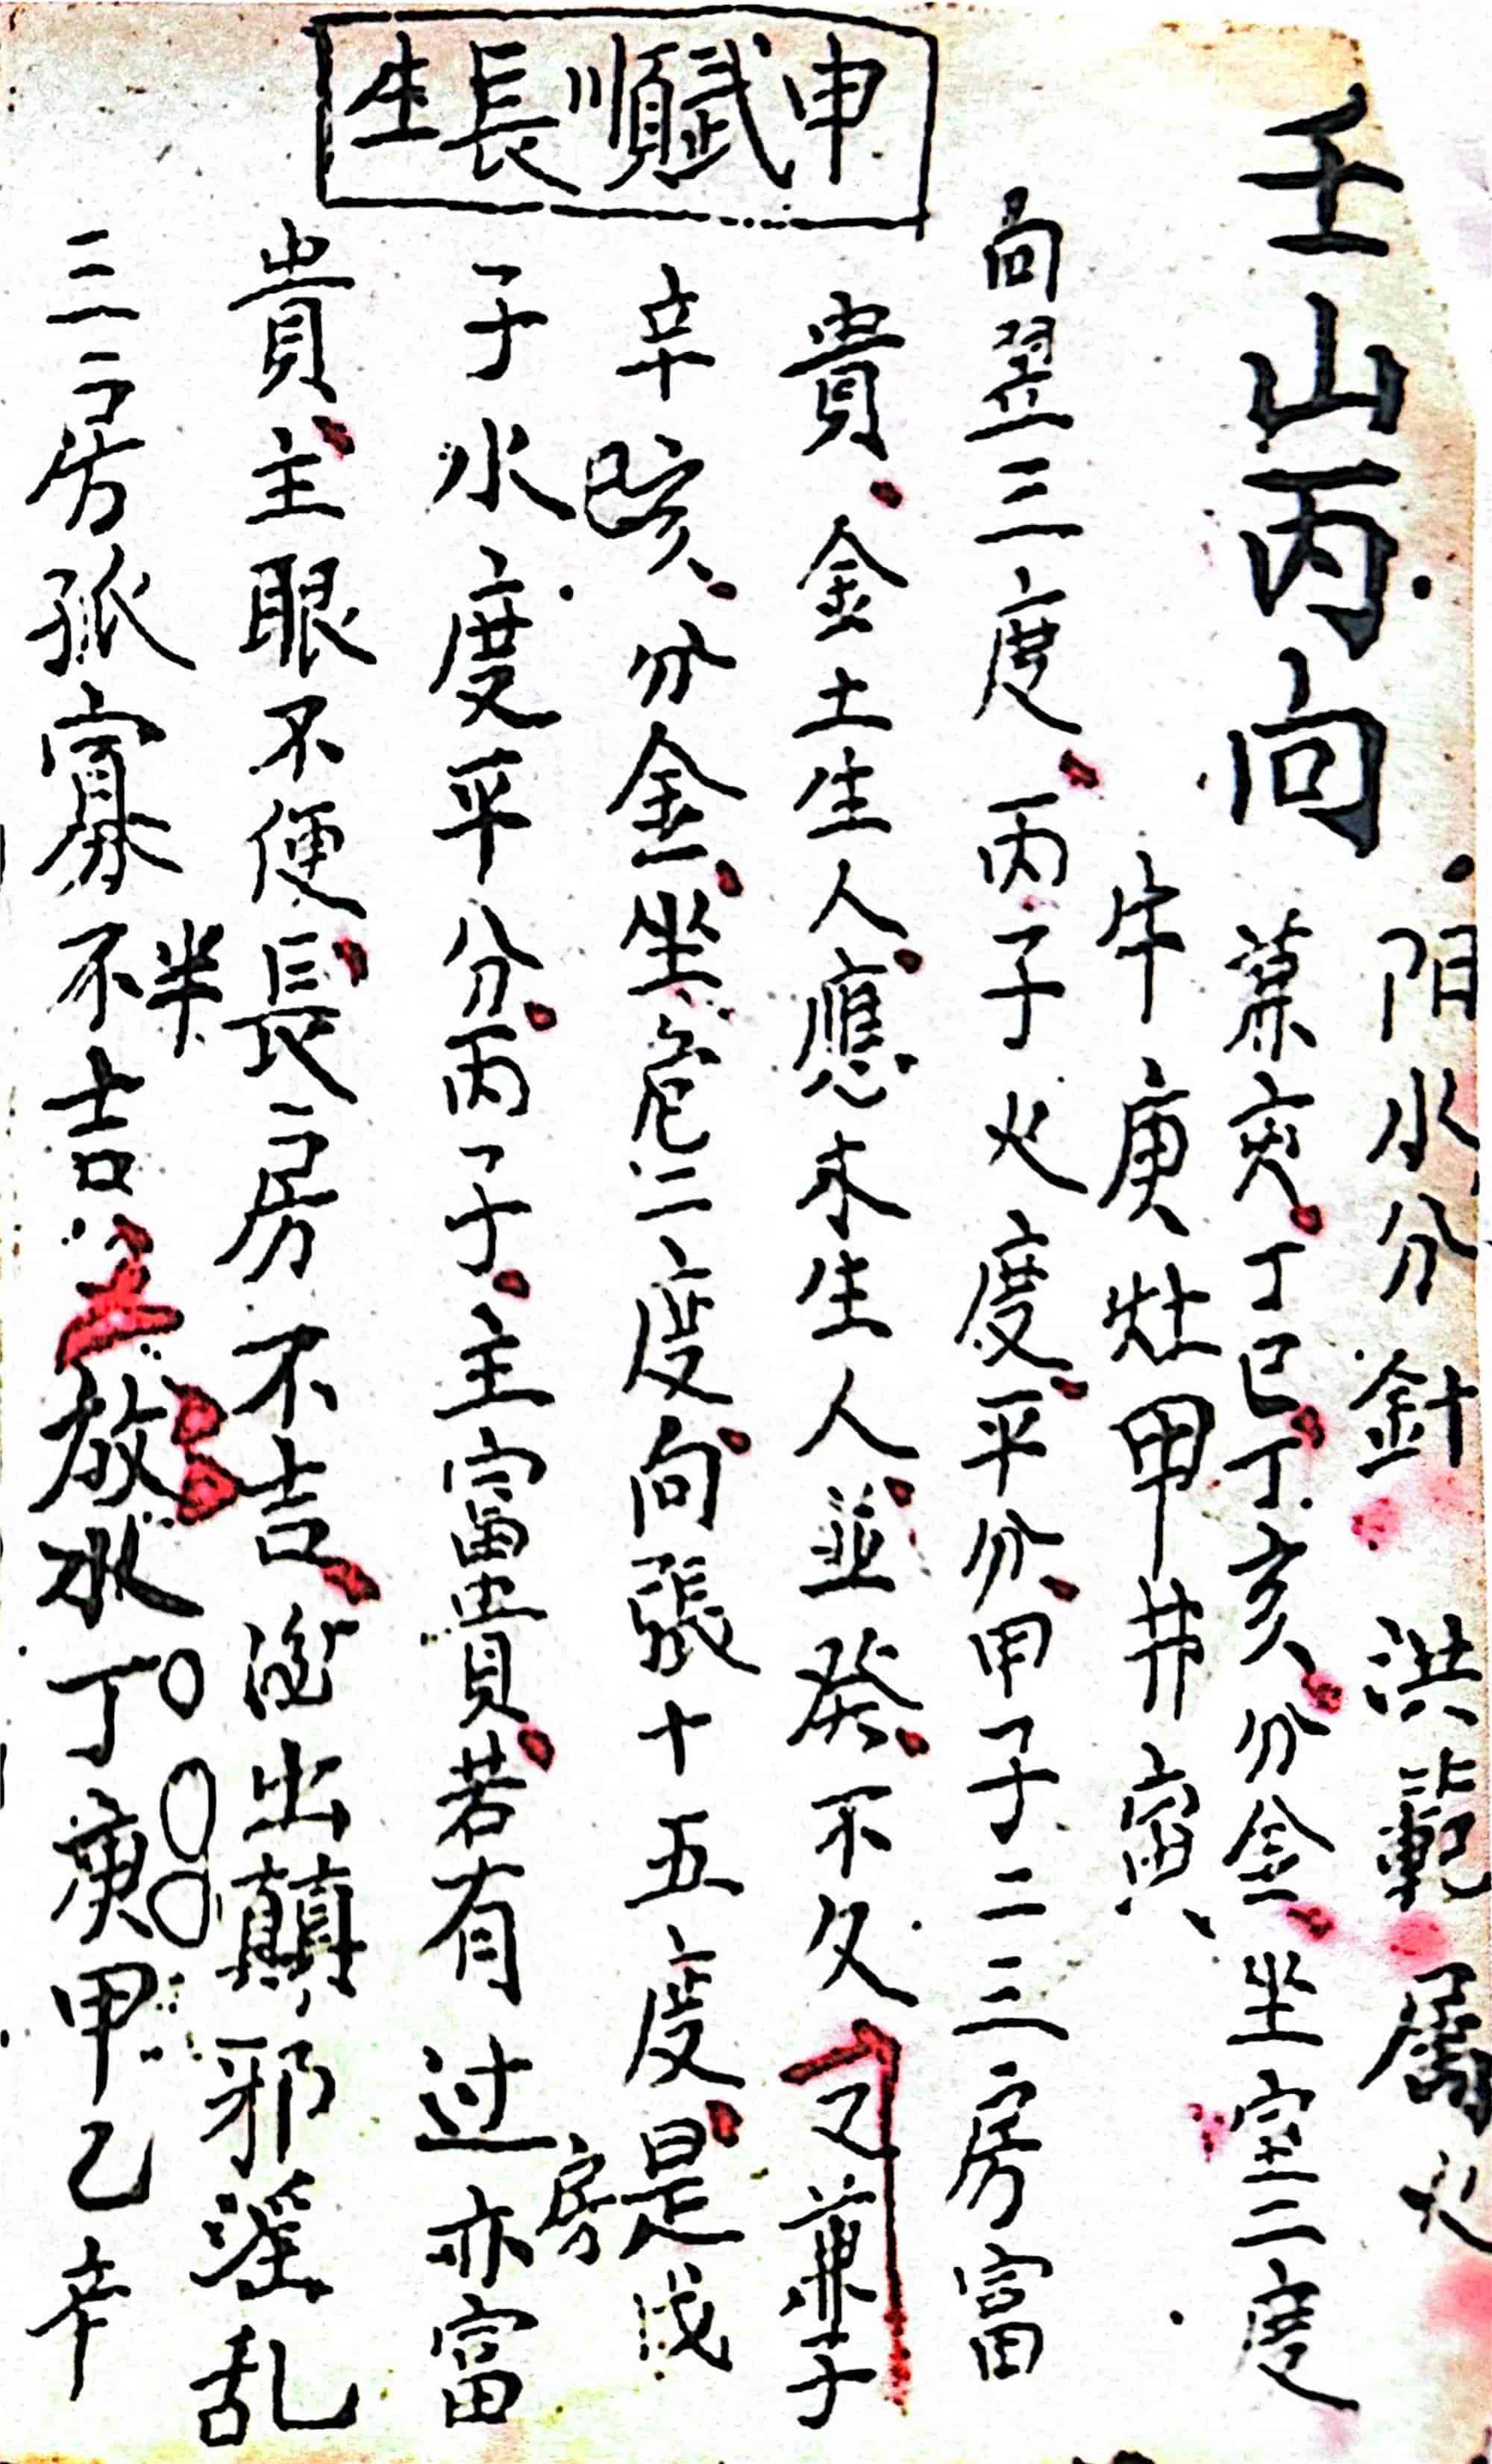 壬山丙向
陽水分針 洪範屬火
兼亥丁巳丁亥分金坐室二度
牛庚灶甲井寅
向翌三度丙子火度平分甲子二三房富
申賦順長生
貴金土生人應木生人並発不久又兼子
辛亥分金坐危二度向張十五度是戊
子水度平分丙子主富貴若有房过亦富
貴主眼不便長房不吉出顛邪淫乱
三房孤寡不半吉放水丁庚甲乙辛